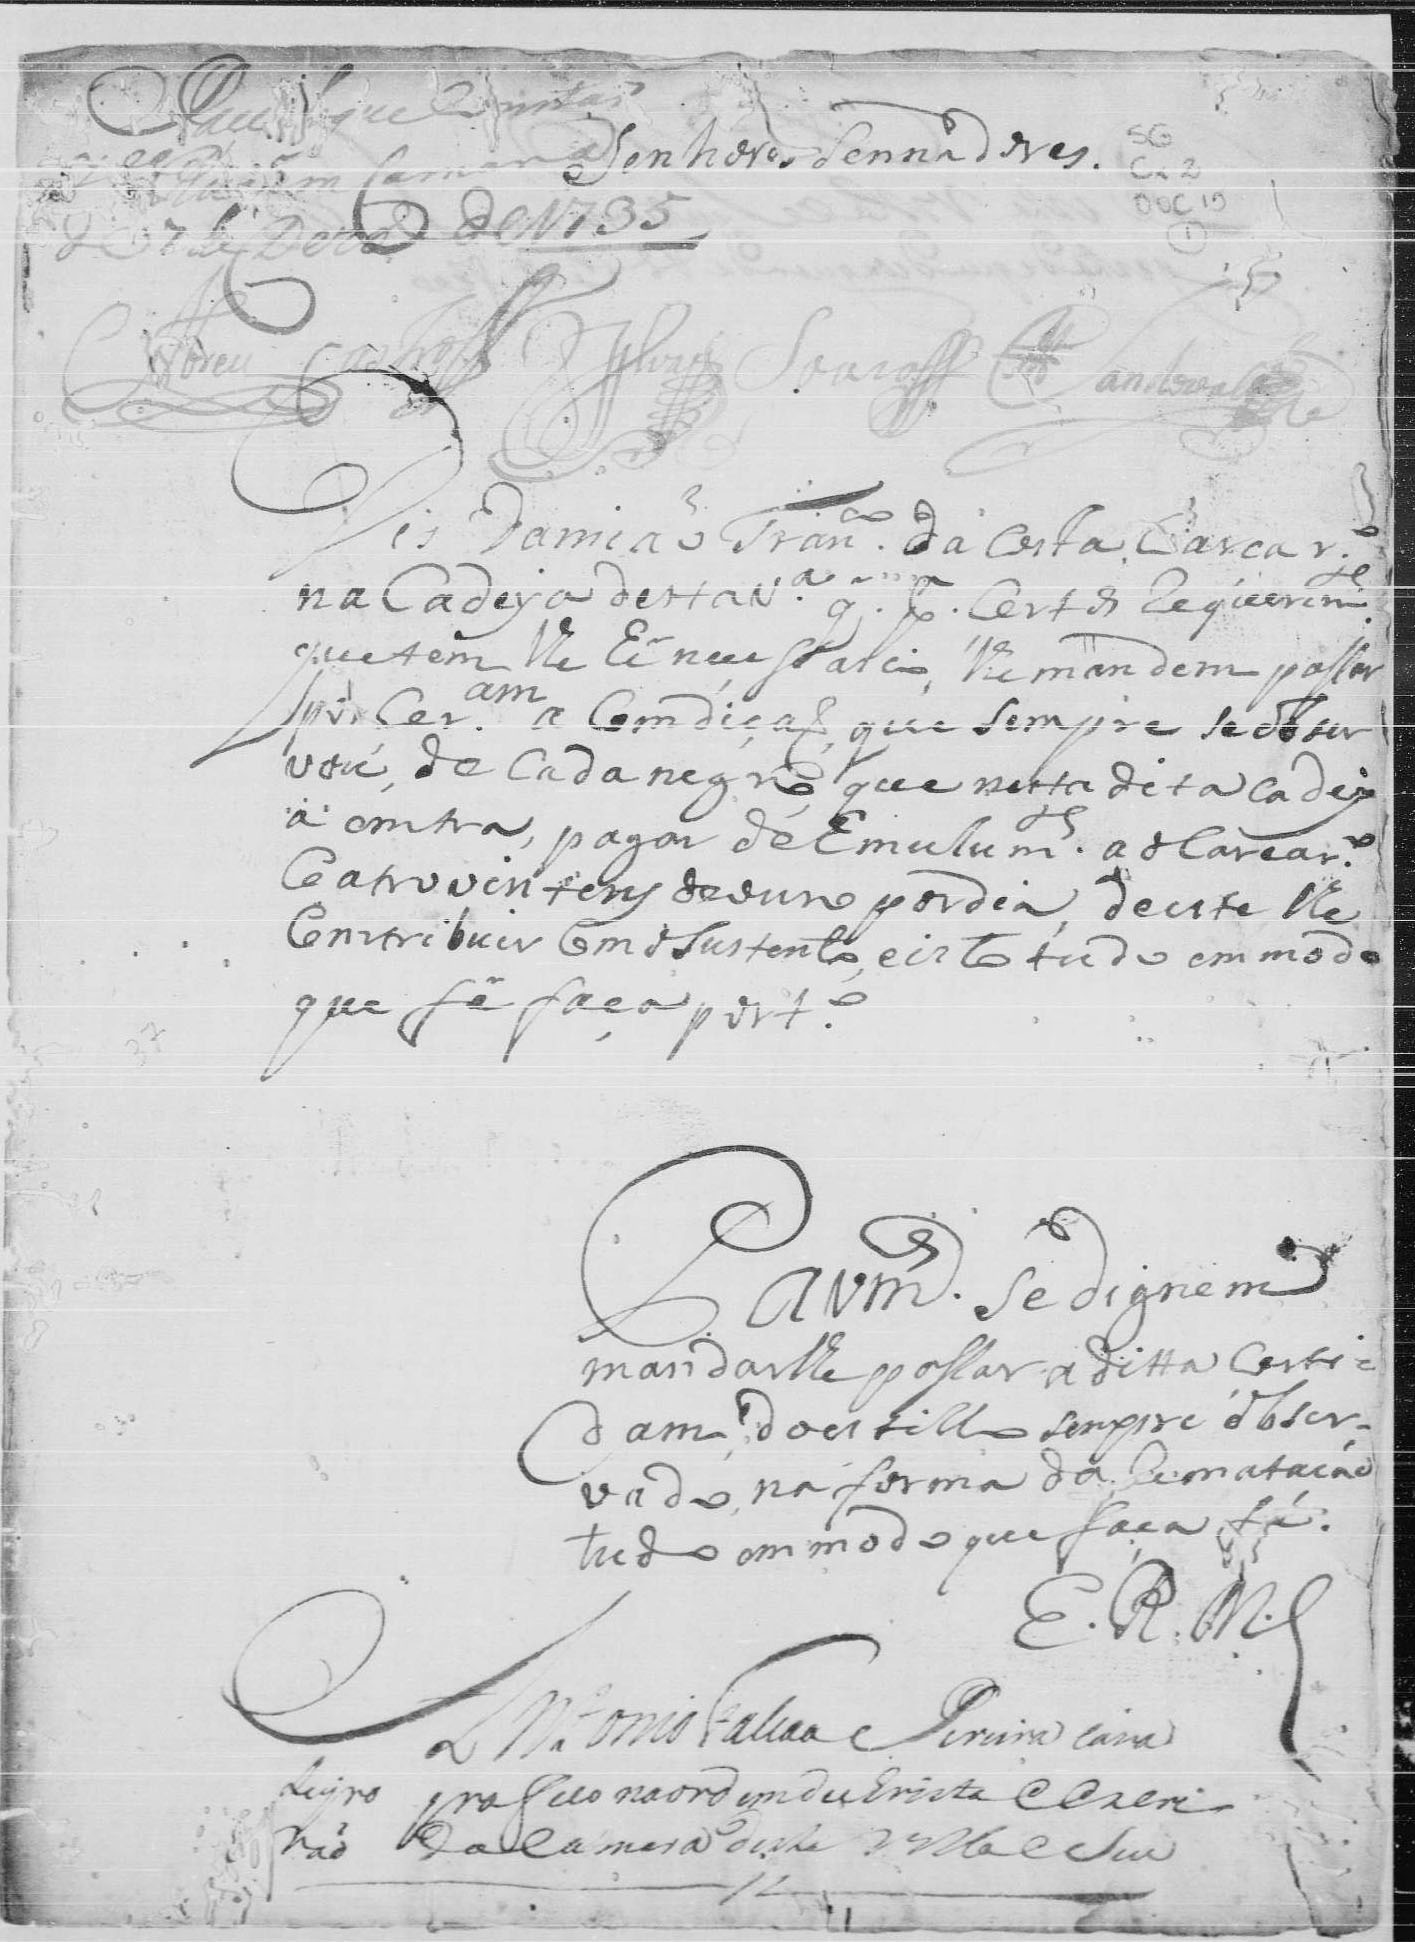 Senhores Sennadores.
SG
Cx 2
DOC 19
1
de 1735
Abreu Castro Sylva Soares Sandoval
Dis Damiaõ Fran.co da Costa Carcar.o
na Cadeya desta V.a q. p.a Certos Requerim.tos
que tem lhe hé necessario, lhe mandem passar
por Cer.am a Comdiçaõ, que sempre se obser
vou, de cada negro, que nesta dita cadey
a emtra, pagar de Emulum.tos ao Carcar.o
Coatro vintens de ouro por dia, deeste lhe
Comtribuir Com o Sustento, e isto tudo em modo
que fé faça port.o
37
P. a Vm.s Se dignem
mandarlhe passar a ditta Certi=
dam, do estillo sempre obser-
vado, na forma da Rematacaõ
tudo em modo que faça fé.
E. R. M.
Antonio Falcaõ Pereira cava
leyro professo na ordem de Cristo e Escri
vaõ da Camera desta Villa e seu